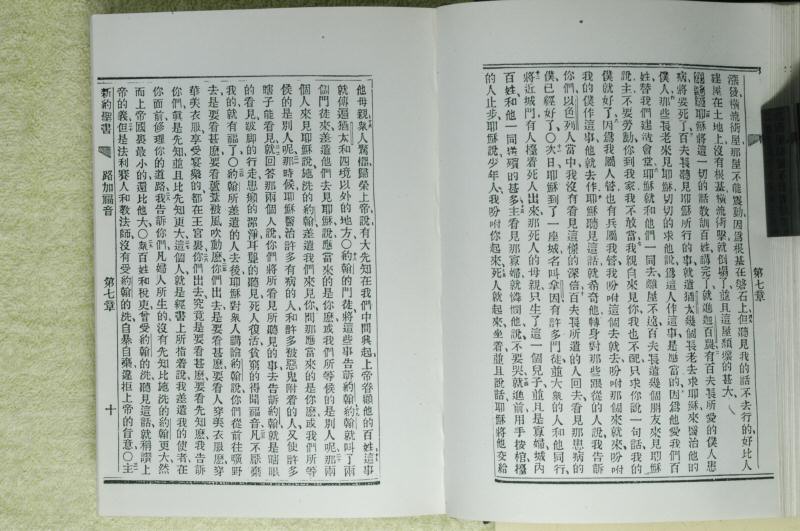 漲發橫流衝屋那屋不能震動因爲根基在磐石上但聽見我的話不去行的好比人
建屋在土地上沒有根基橫流衝擊就倒塌了並且這屋頹壞的甚大
耶穌將這一切的話教訓百姓講完了就進迦百農有百夫長所愛的僕人患
病將要死了百夫長聽見耶穌所行的事就遣猶太幾個長老去求耶穌來醫治他的
僕人那些長老來見耶穌切切的求他說爲這人作這事是應當的因爲他愛我們百
姓替我們建造會堂耶穌就和他們一同去離屋不遠百夫長遣幾個朋友來見耶穌
說主不要勞動你到我家我不敢當我親自來見你我也不配只求你說一句話我的
僕就好了因爲我屬人管也有兵屬我管我吩咐這個去就去吩咐那個來就來吩咐
我的僕作這事他就去作耶穌聽見這話就希奇他轉身對那些跟從的人說我告訴
你們以色列人當中我沒有看見這樣的深信百夫長所遣的人回去看見那患病的
僕已經好了〇次日耶穌到了一座城名叫拿因有許多門徒並大衆的人和他同行
將近城門有人擡着死人出來那死人的母親只生了這一個兒子並且是寡婦城內
百姓和他一同送殯的甚多主看見那寡婦就憐憫他說不要哭就進前用手按棺擡
的人止步耶穌說少年人我吩咐你起來死人就起來坐着並且說話耶穌將他交給
第七章
他母親衆人驚懼歸榮上帝說有大先知在我們中間興起上帝眷顧他的百姓這事
就傳遍猶太和四境以外的地方〇約翰的門徒將這些事告訴約翰約翰就叫了兩
個門徒來差遣他們去見耶穌說應當來的是你麽或我們所等候的是別人呢那兩
個人來見耶穌說施洗的約翰差遣我們來見你問那應當來的是你麽或我們所等
候的是別人呢那時候耶穌醫治許多有病的人和許多被惡鬼附着的人又使許多
瞎子能看見就回答那兩個人說你們將所看見所聽見的事去告訴約翰就是瞎眼
的看見跛脚的行走患癩的潔淨耳聾的聽見死人復活貧窮的得聞福音凡不厭棄
我的就有福了〇約翰所差遣的人去後耶穌對衆人講論約翰說你們從前往曠野
去是要看甚麽要看蘆葦被風吹動麽你們出去是要看甚麽要看人穿美衣服麽穿
華美衣服享受宴樂的都在王宮裏你們出去究竟是要看甚麽要看先知麽我告訴
你們就是先知並且比先知更大這個人就是經書上所指着說我差遣我的使者在
你面前修理你的道路我告訴你們凡婦人所生的沒有先知比施洗的約翰更大然
而上帝國裏最小的還比他大〇衆百姓和稅吏曾受約翰的洗聽見這話就稱讚上
帝的義但是法利賽人和教法師沒有受約翰的洗自暴自棄違拒上帝的旨意〇主
新約聖書 路加福音 第七章 十